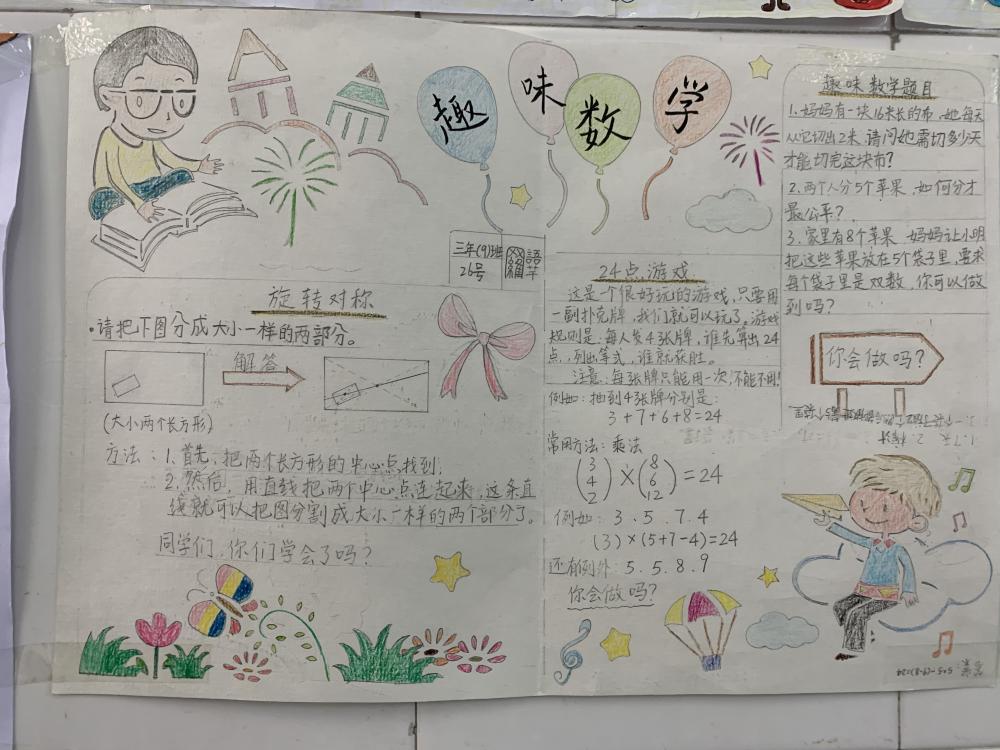 趣味数学
三年(9)班
26号
旋转对称
•请把下图分成大小一样的两部分。
解答
(大小两个长方形)
方法:1.首先,把两个长方形的中心点找到;
2.然后,用直线把两个中心点连起来,这条直
线就可以把图分割成大小一样的两个部分了。
同学们,你们学会了吗?
24点游戏
这是个很好玩的游戏,只要用
一副扑克牌,我们就可以玩了。游戏
规则是:每人发4张牌,谁先算出24
点,列出等式,谁就获胜。
注意:每张牌只能用一次,不能不用!
例如:抽到4张牌分别是:
3+7+6+8=24
常用方法:乘法
(3 4 2)×(8 6 12)=24
例如:3.5.7.4
(3)×(5+7-4)=24
还有例外:5.5.8.9
你会做吗?
趣味数学题目
1.妈妈有一块16米长的布,她每天
从它切出2米,请问她需切多少天
才能切完这块布?
2.两个人分5个苹果,如何分才
最公平?
3.家里有8个苹果,妈妈让小明
把这些苹果放在5个袋子里,要求
每个袋子里是双数,你可以做
到吗?
你会做吗?
答案:5×5-(9-8)=24